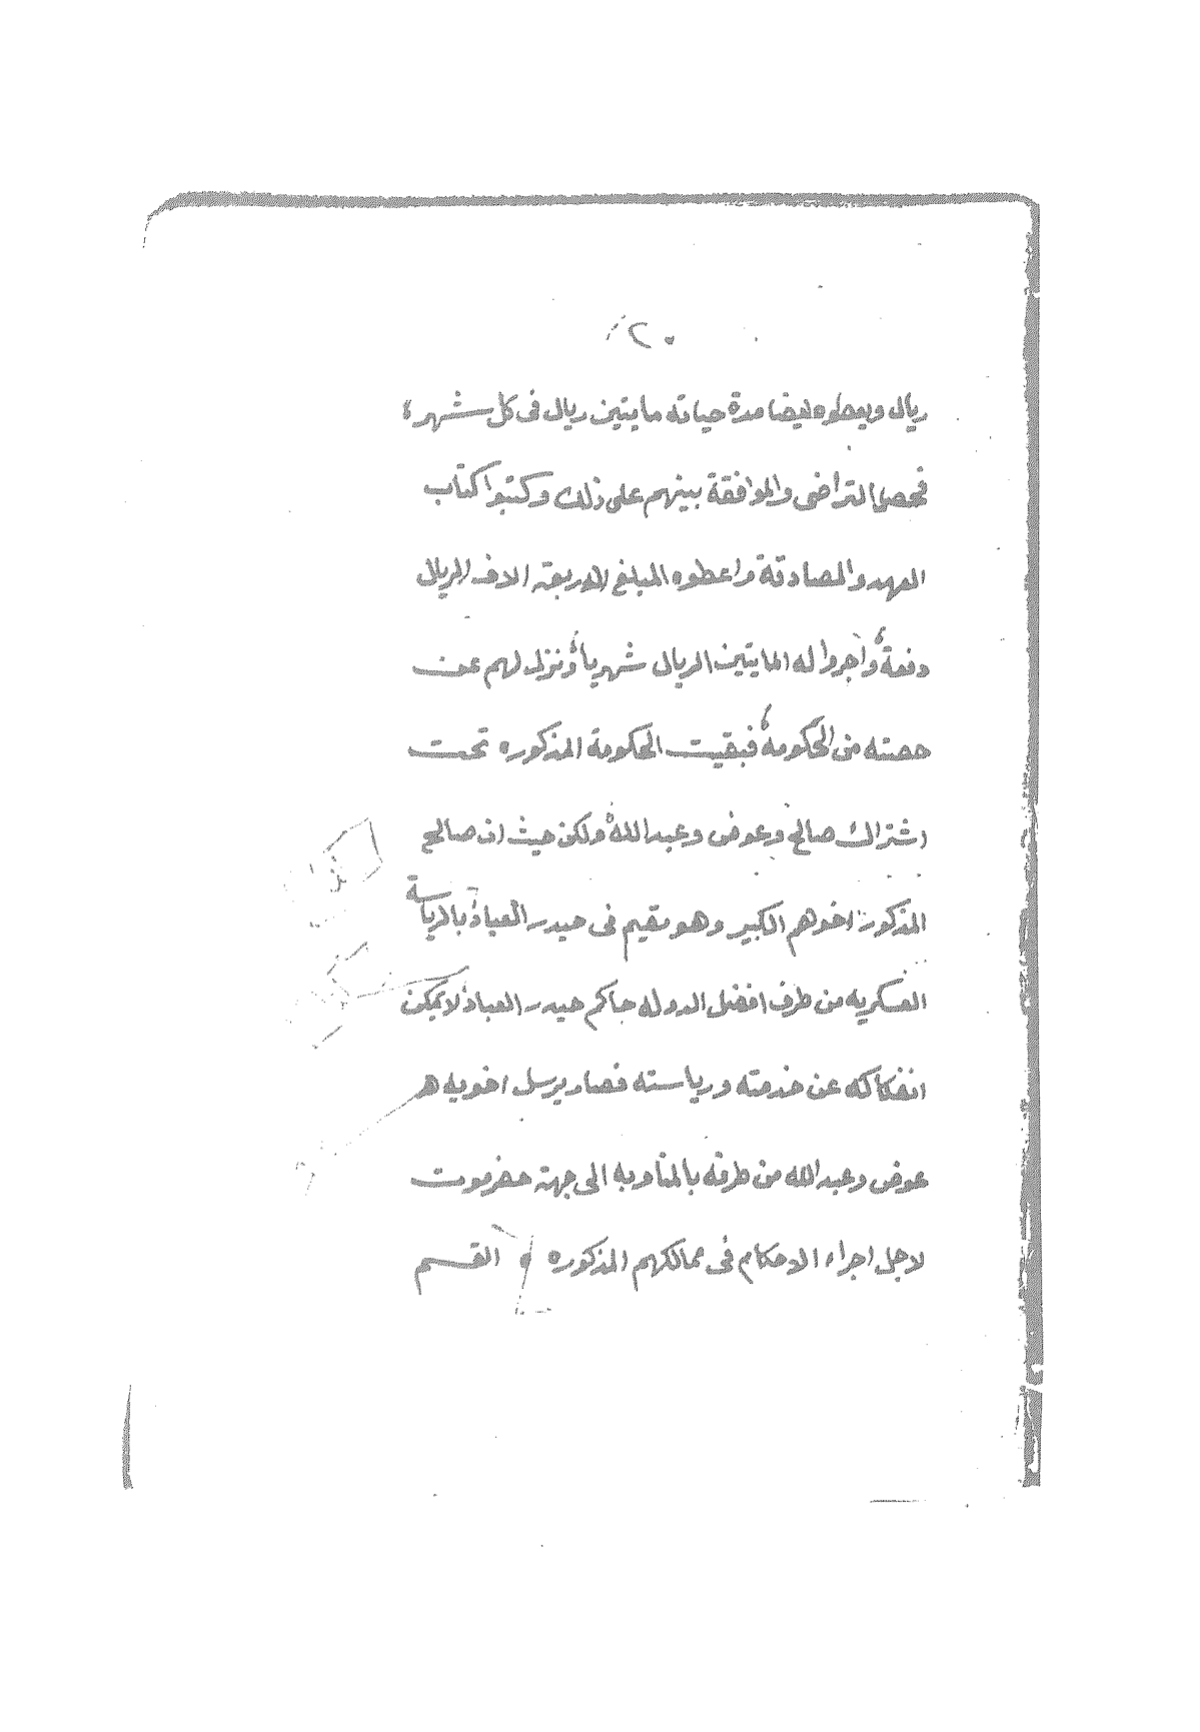 ٢٠
ريال ويعطوه ايضا مدة حياته مايتين ريال فى كل شهر،
فحصل التراضى والموافقة بينهم على ذلك وكتبوا كتاب
العهد والمصادقة واعطوه المبلغ الاربعة الاف الريال
دفعة وأجروا له المايتين الريال شهرياً ونزل لهم عن
حصته من الحكومة فبقيت الحكومة المذكوره تحت
اشتراك صالح وعوض وعبدالله ولكن حيث ان صالح
المذكور اخوهم الكبير وهو مقيم فى حيدر العباد بالرياسة
العسكريه من طرف افضل الدوله حاكم حيدر العباد لا يمكن
انفكاكه عن خدمته ورياسته فصار يرسل اخويه هـ
عوض وعبدالله من طرفه بالمناوبه الى جهة حضرموت
لاجل اجراء الاحكام فى ممالكهم المذكوره ، القسم